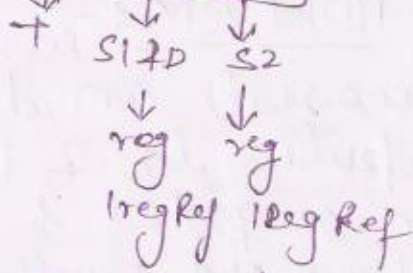 + S1&D S2
reg reg
|regRef |Reg Ref